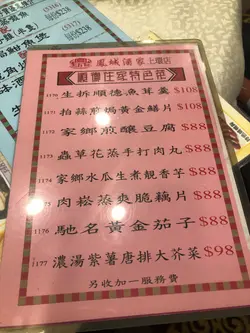 鳳城酒家 上環店
順德住家特色菜
1170 生拆順德魚茸羹 $108
1171 拍蒜煎焗黃金鱔片 $108
1172 家鄉煎釀豆腐 $88
1173 蟲草花蒸手打肉丸 $88
1174 家鄉水瓜生煮靚香芋 $88
1175 肉崧蒸爽脆藕片 $88
1176 馳名黃金茄子 $88
1177 濃湯紫薯唐排大芥菜 $98
另收加一服務費